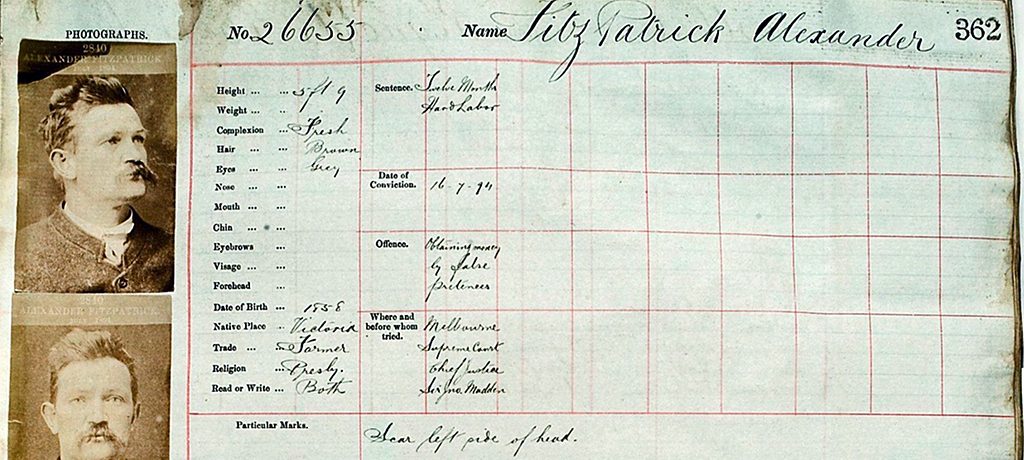 PHOTOGRAPHS.
No. 26655 Name FitzPatrick Alexander 362
2840
ALEXANDER FITZPATRICK.
2840
ALEXANDER FITZPATRICK.
Height ... ... 5ft 9
Weight ... ...
Complexion ... Fresh
Hair ... ... Brown
Eyes ... ... Grey
Nose ... ...
Mouth ... ...
Chin ... ...
Eyebrows ...
Visage ... ...
Forehead ...
Date of Birth ... 1858
Native Place .. Victoria
Trade ... ... Farmer
Religion ... Presby.
Read or Write ... Both
Sentence. Twelve Months
Hard Labor
Date of
Conviction. 16-7-94
Offence. Obtaining money
by false
pretences
Where and
before whom
tried.
Melbourne
Supreme Court
Chief Justice
Sir Jno. Madden
Particular Marks.
Scar left side of head.